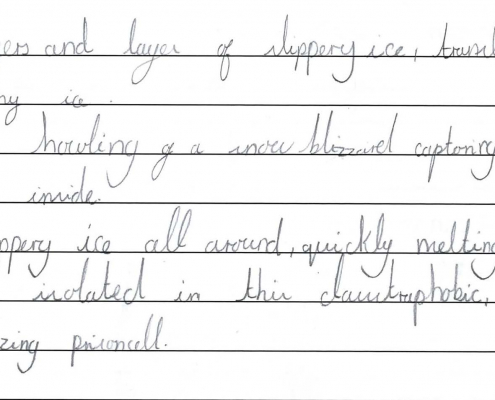 ers and layer of slippery ice, transl
ny ice.
howling of a snow blizzard captoring
inside.
ppery ice all around, quickly melting
isolated in this claustraphobic,
zing prisoncell.